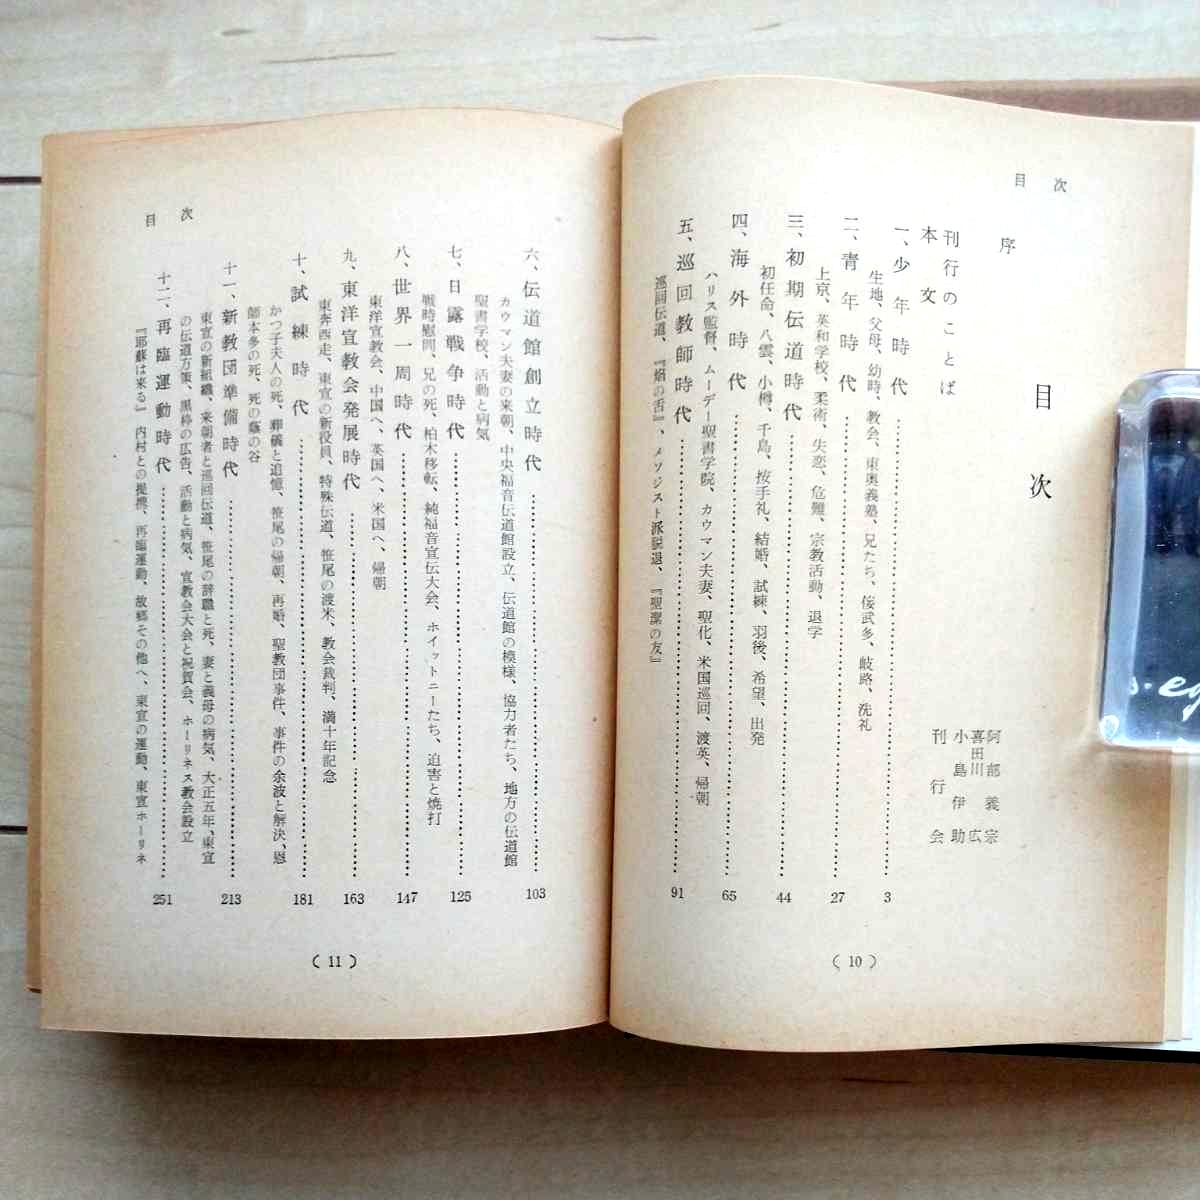 目次
目次
序
阿部義宗
喜田川広
小島伊助
刊行のことば
刊行会
本文
一、少年時代 3
生地、父母、幼時、教会、東奥義塾、兄たち、佞武多、岐路、洗礼
二、青年時代 27
上京、英和学校、柔術、失恋、危難、宗教活動、退学
三、初期伝道時代 44
初任命、八雲、小樽、千島、按手礼、結婚、試練、羽後、希望、出発
四、海外時代 65
ハリス監督、ムーデー聖書学院、カウマン夫妻、聖化、米国巡回、渡英、帰朝
五、巡回教師時代 91
巡回伝道、『焔の舌』、メソジスト派脱退、『聖潔の友』
(10)
六、伝道館創立時代 103
カウマン夫妻の来朝、中央福音伝道館設立、伝道館の模様、協力者たち、地方の伝道館
聖書学校、活動と病気
七、日露戦争時代 125
戦時慰問、兄の死、柏木移転、純福音宣伝大会、ホイットニーたち、迫害と焼打
八、世界一周時代 147
東洋宣教会、中国へ、英国へ、米国へ、帰朝
九、東洋宣教会発展時代 163
東奔西走、東宣の新役員、特殊伝道、笹尾の渡米、教会裁判、満十年記念
十、試練時代 181
かつ子夫人の死、葬儀と追憶、笹尾の帰朝、再婚、聖教団事件、事件の余波と解決、恩
師本多の死、死の蔭の谷
十一、新教団準備時代 213
東宣の新組織、来朝者と巡回伝道、笹尾の辞職と死、妻と義母の病気、大正五年、東宣
の伝道方策、黒枠の広告、活動と病気、宣教会大会と祝賀会、ホーリネス教会設立
十二、再臨運動時代 251
『耶蘇は来る』内村との提携、再臨運動、故郷その他へ、東宣の運動、東宣ホーリネ
(11)
目次